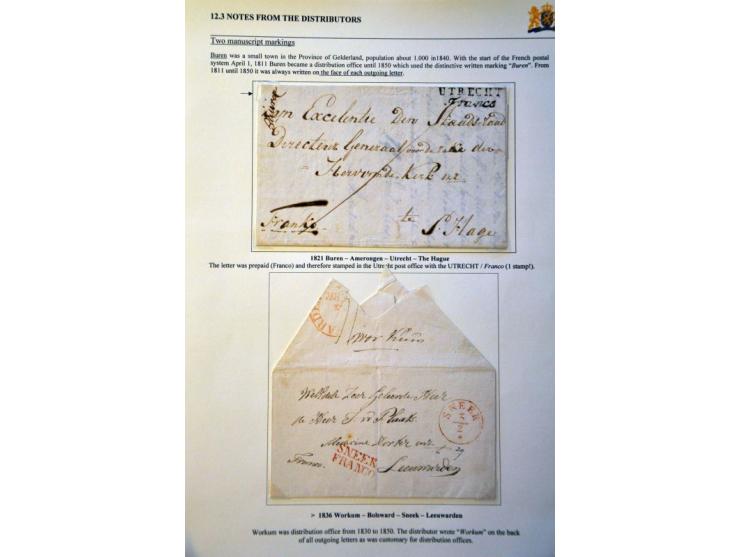 12.3 NOTES FROM THE DISTRIBUTORS
Two manuscript markings
Buren was a small town in the Province of Gelderland, population about 1.000 in1840. With the start of the French postal
system April 1, 1811 Buren became a distribution office until 1850 which used the distinctive written marking "Buren". From
1811 until 1850 it was always written on the face of each outgoing letter.
UTRECHT
Franco
Excelentie Den Staadsraad
Directeur Generaal voor de zake der
Hervormde Kerk enz
te
Franko
S. Hage
1821 Buren – Amerongen – Utrecht – The Hague
The letter was prepaid (Franco) and therefore stamped in the Utrecht post office with the UTRECHT / Franco (1 stamp!).
Heer
de Heer
SNEEK
3/2
Medicine Doctor enz
SNEEK
FRANCO
Franco
Leeuwarden
> 1836 Workum – Bolsward – Sneek – Leeuwarden
Workum was distribution office from 1830 to 1850. The distributor wrote "Workum" on the back
of all outgoing letters as was customary for distribution offices.